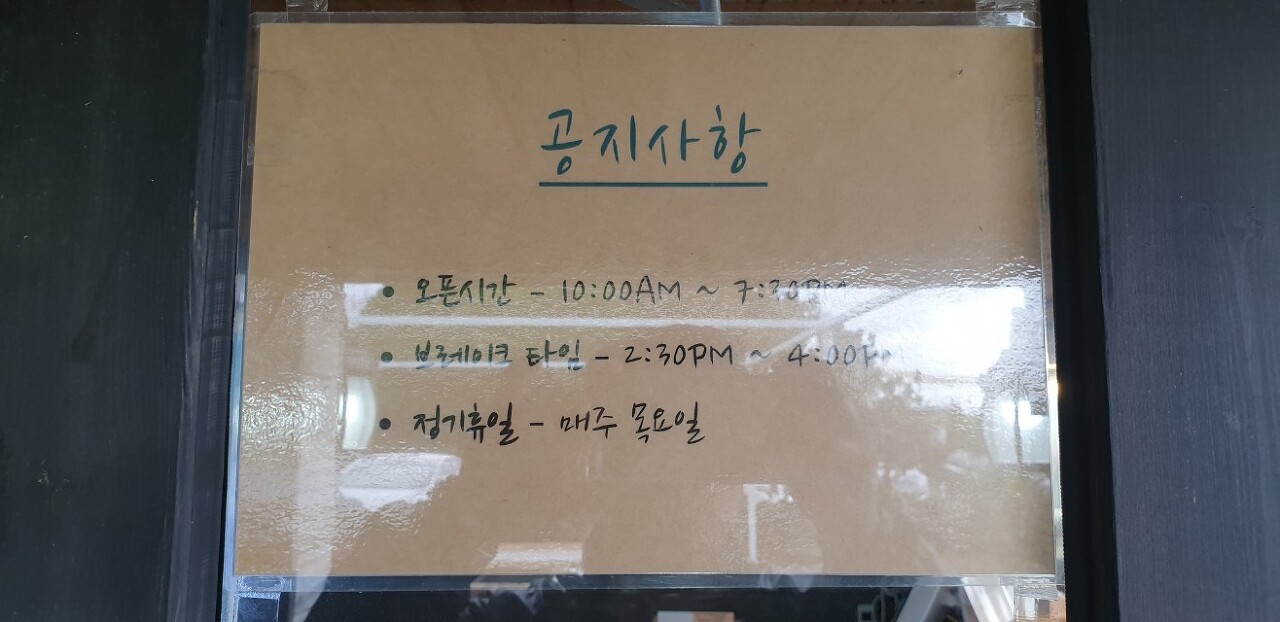 공지사항
• 오픈시간 - 10:00AM ~ 7:30PM
• 브레이크 타임 - 2:30PM ~ 4:00PM
• 정기휴일 - 매주 목요일